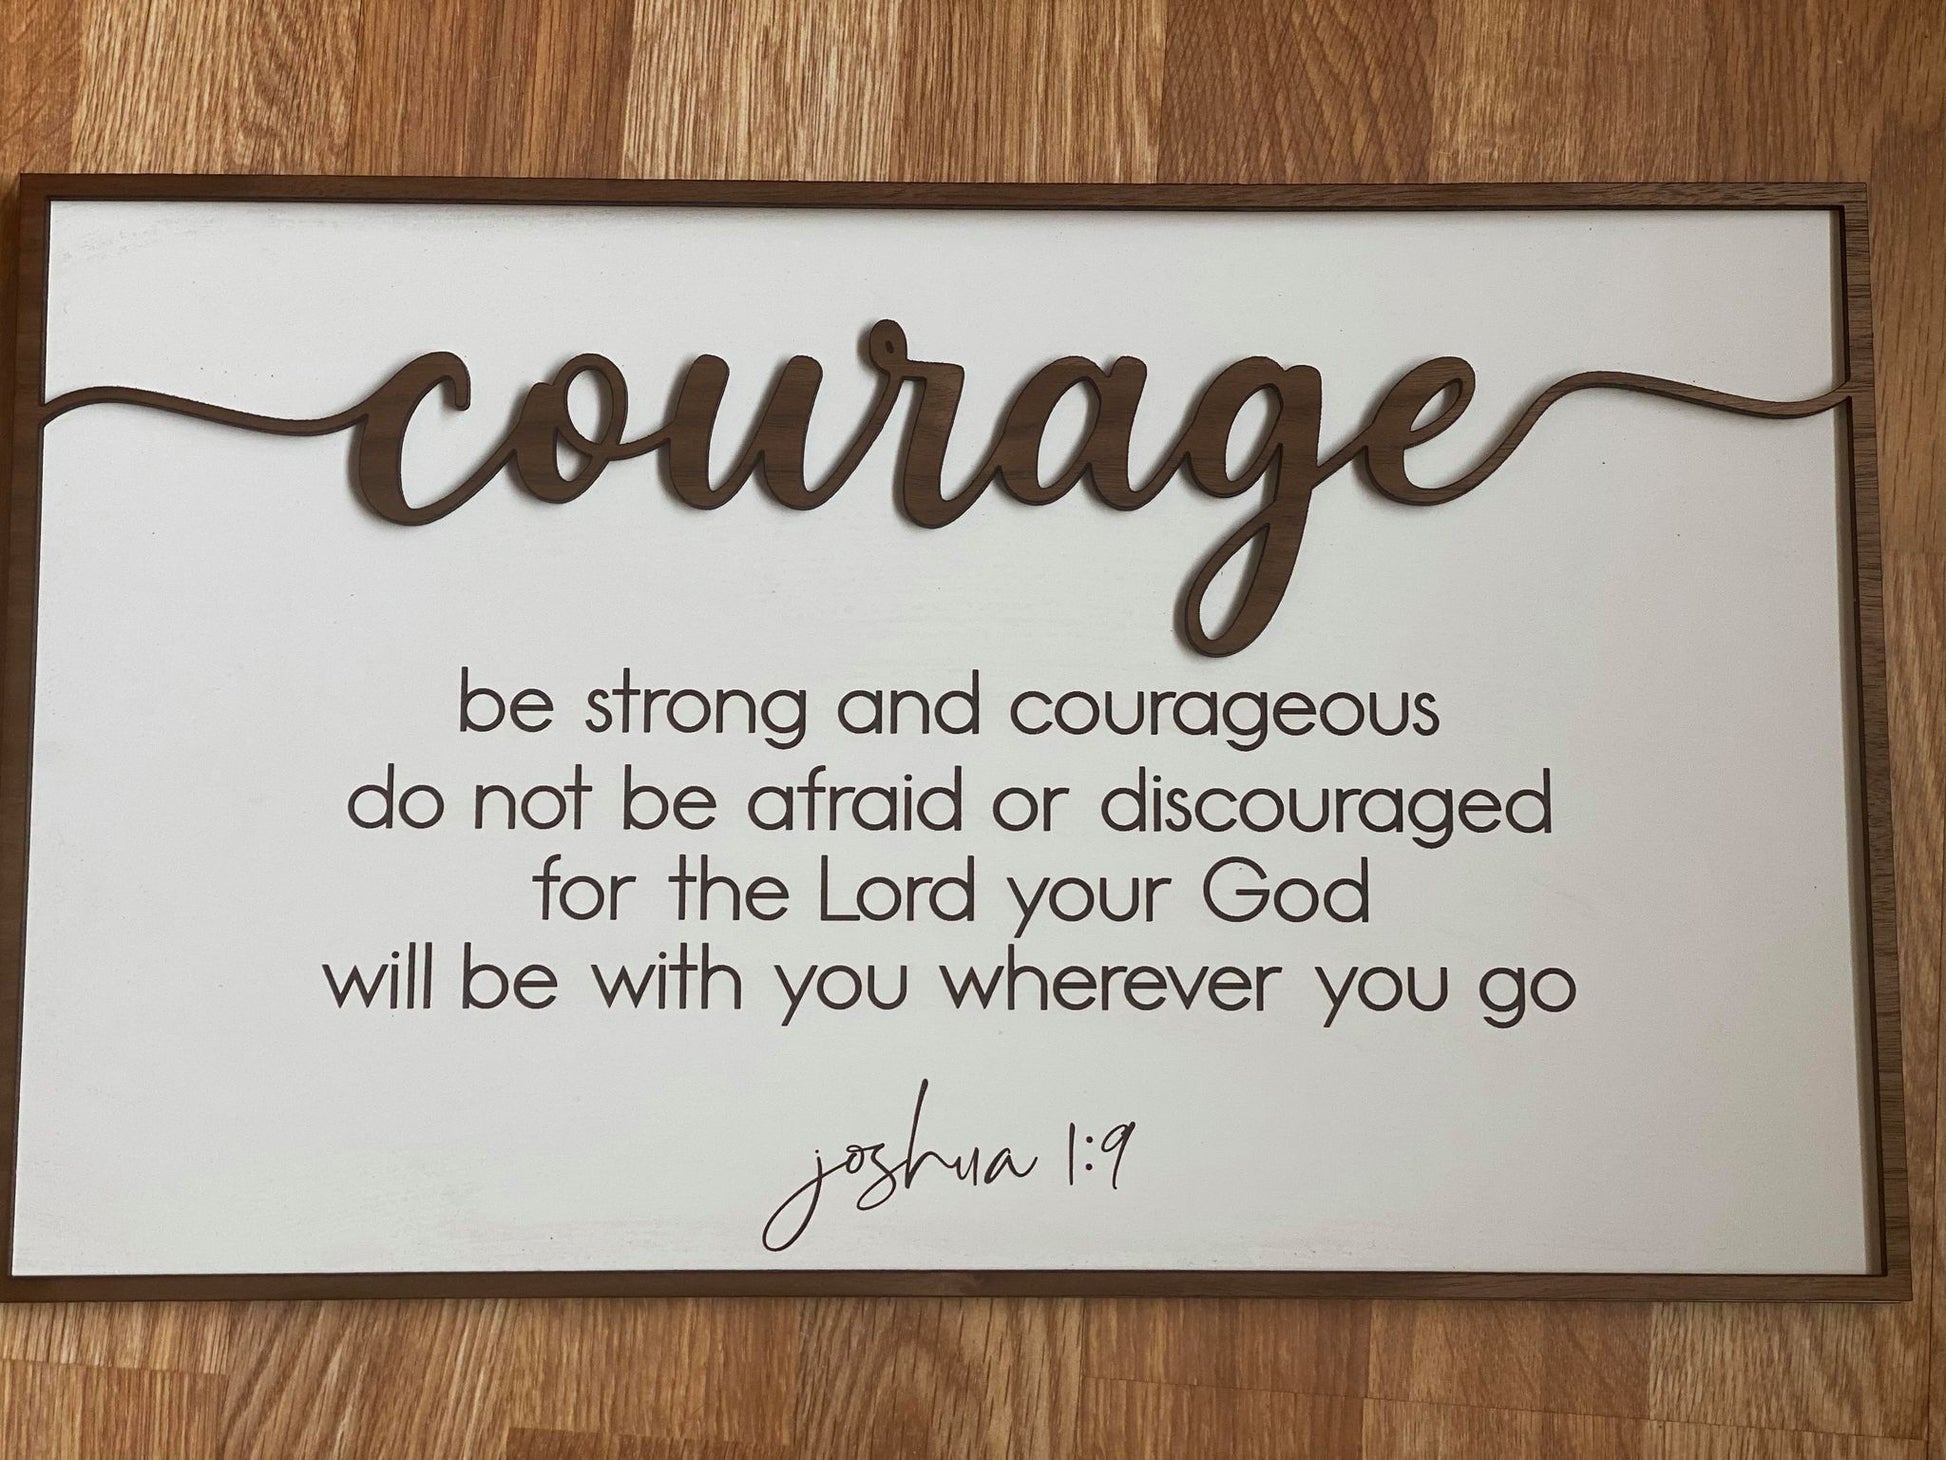 courage
be strong and courageous
do not be afraid or discouraged
for the Lord your God
will be with you wherever you go
joshua 1:9